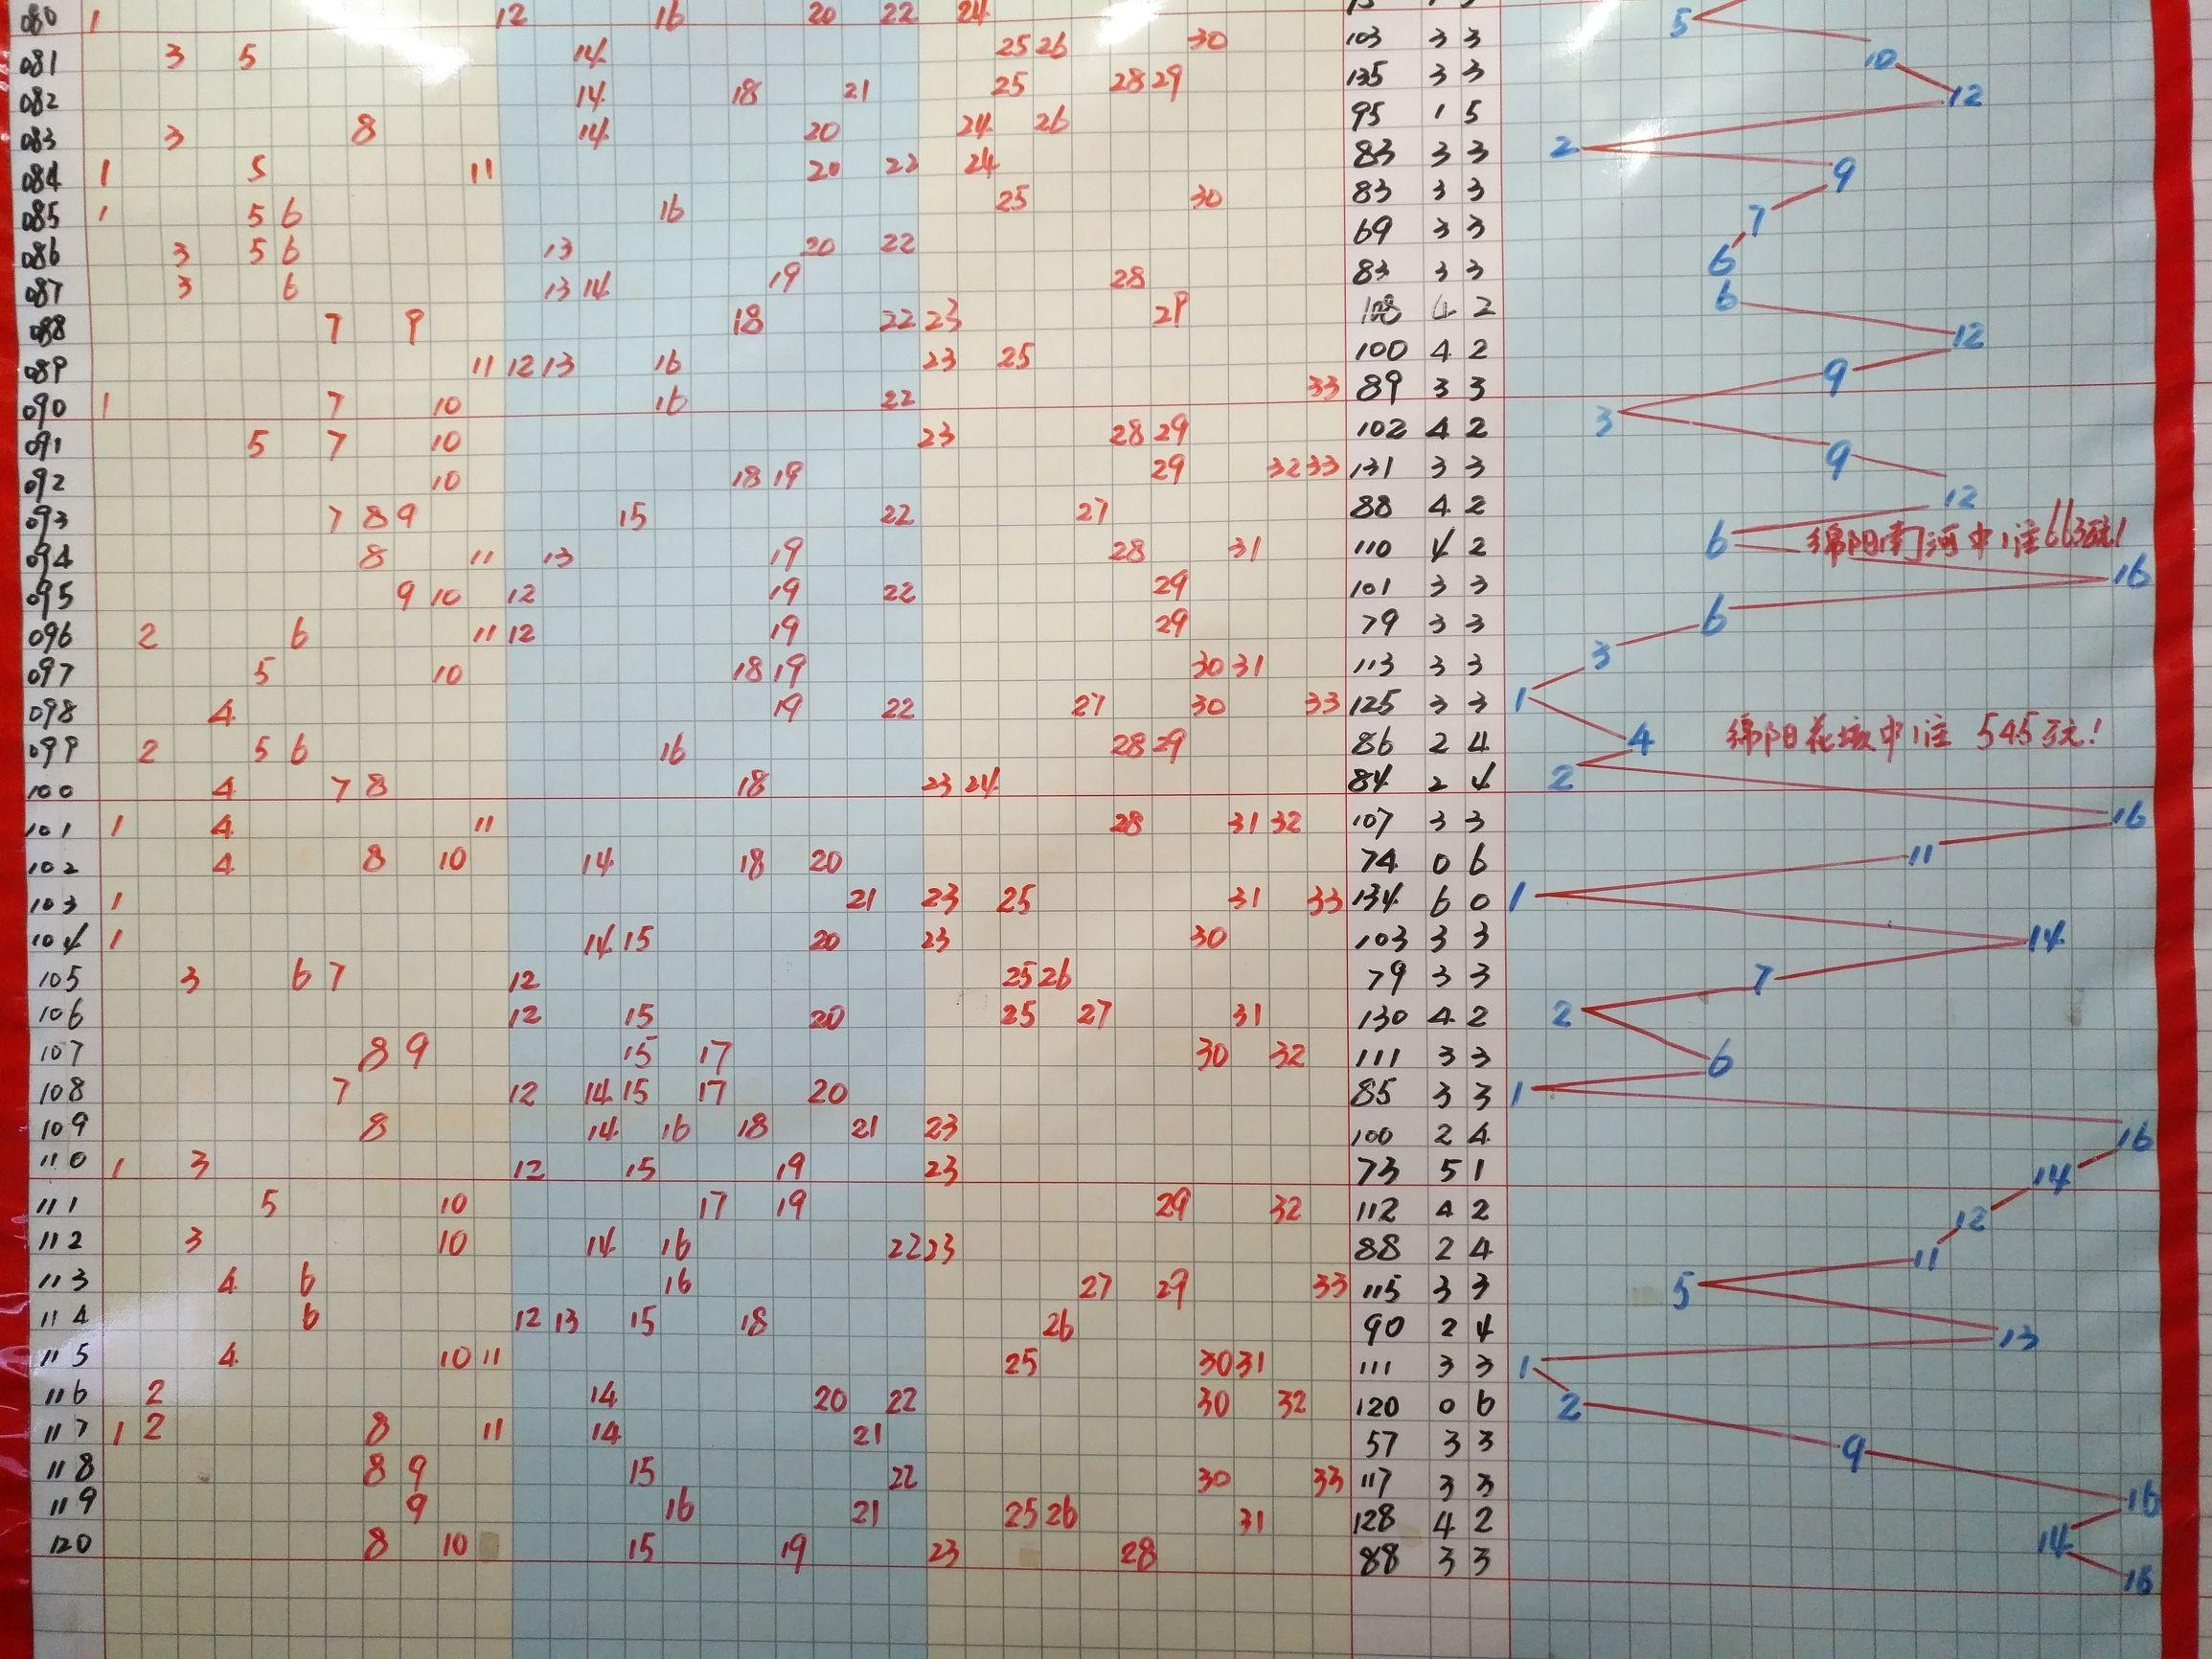 080 1 12 16 20 22 24
081 3 5 14 25 26 30 103 3 3 5
082 14 18 21 25 28 29 135 3 3 10
083 3 8 14 20 24 26 95 1 5 12
084 1 5 11 20 22 24 83 3 3 2
085 1 5 6 16 25 30 83 3 3 9
086 3 5 6 13 20 22 69 3 3 7
087 3 6 13 14 19 28 83 3 3 6
088 7 9 18 22 23 29 108 4 2 6
089 11 12 13 16 23 25 100 4 2 12
090 1 7 10 16 22 33 89 3 3 9
091 5 7 10 23 28 29 102 4 2 3
092 10 18 19 29 32 33 131 3 3 9
093 7 8 9 15 22 27 88 4 2 12
094 8 11 13 19 28 31 110 4 2 6 绵阳南河中1注663万元!
095 9 10 12 19 22 29 101 3 3 16
096 2 6 11 12 19 29 79 3 3 6
097 5 10 18 19 30 31 113 3 3 3
098 4 19 22 27 30 33 125 3 3 1
099 2 5 6 16 28 29 86 2 4 4 绵阳花垓中1注 545万元!
100 4 7 8 18 23 24 84 2 4 2
101 1 4 11 28 31 32 107 3 3 16
102 4 8 10 14 18 20 74 0 6 11
103 1 21 23 25 31 33 134 6 0 1
104 1 14 15 20 23 30 103 3 3 14
105 3 6 7 12 25 26 79 3 3 7
106 12 15 20 25 27 31 130 4 2 2
107 8 9 15 17 30 32 111 3 3 6
108 7 12 14 15 17 20 85 3 3 1
109 8 14 16 18 21 23 100 2 4 16
110 1 3 12 15 19 23 73 5 1 14
111 5 10 17 19 29 32 112 4 2 12
112 3 10 14 16 22 23 88 2 4 11
113 4 6 16 27 29 33 115 3 3 5
114 6 12 13 15 18 26 90 2 4 13
115 4 10 11 25 30 31 111 3 3 1
116 2 14 20 22 30 32 120 0 6 2
117 1 2 8 11 14 21 57 3 3 9
118 8 9 15 22 30 33 117 3 3 16
119 9 16 21 25 26 31 128 4 2 14
120 8 10 15 19 23 28 88 3 3 16